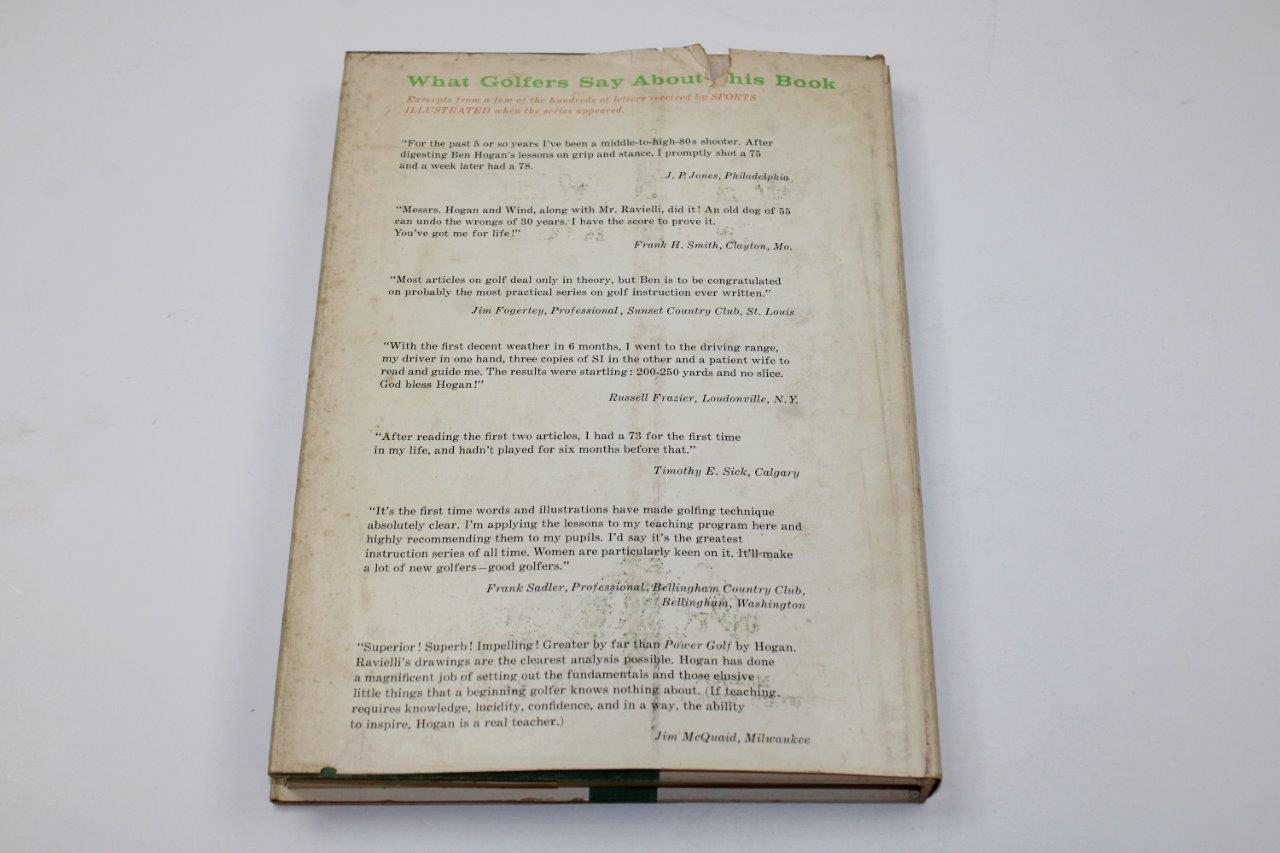 What Golfers Say About This Book
Excerpts from a few of the hundreds of letters received by SPORTS
ILLUSTRATED when the series appeared.
“For the past 5 or so years I've been a middle-to-high-80s shooter. After
digesting Ben Hogan's lessons on grip and stance, I promptly shot a 75
and a week later had a 78.
J. P. Jones, Philadelphia
“Messrs. Hogan and Wind, along with Mr. Ravielli, did it! An old dog of 55
can undo the wrongs of 30 years. I have the score to prove it.
You've got me for life!”
Frank H. Smith, Clayton, Mo.
“Most articles on golf deal only in theory, but Ben is to be congratulated
on probably the most practical series on golf instruction ever written.”
Jim Fogertey, Professional, Sunset Country Club, St. Louis
“With the first decent weather in 6 months, I went to the driving range,
my driver in one hand, three copies of SI in the other and a patient wife to
read and guide me. The results were startling: 200-250 yards and no slice.
God bless Hogan!”
Russell Frazier, Loudonville, N.Y.
“After reading the first two articles, I had a 73 for the first time
in my life, and hadn't played for six months before that.”
Timothy E. Sick, Calgary
“It's the first time words and illustrations have made golfing technique
absolutely clear. I'm applying the lessons to my teaching program here and
highly recommending them to my pupils. I'd say it's the greatest
instruction series of all time. Women are particularly keen on it. It'll make
a lot of new golfers—good golfers.”
Frank Sadler, Professional, Bellingham Country Club,
Bellingham, Washington
“Superior! Superb! Impelling! Greater by far than Power Golf by Hogan.
Ravielli's drawings are the clearest analysis possible. Hogan has done
a magnificent job of setting out the fundamentals and those elusive
little things that a beginning golfer knows nothing about. (If teaching
requires knowledge, lucidity, confidence, and in a way, the ability
to inspire, Hogan is a real teacher.)
Jim McQuaid, Milwaukee